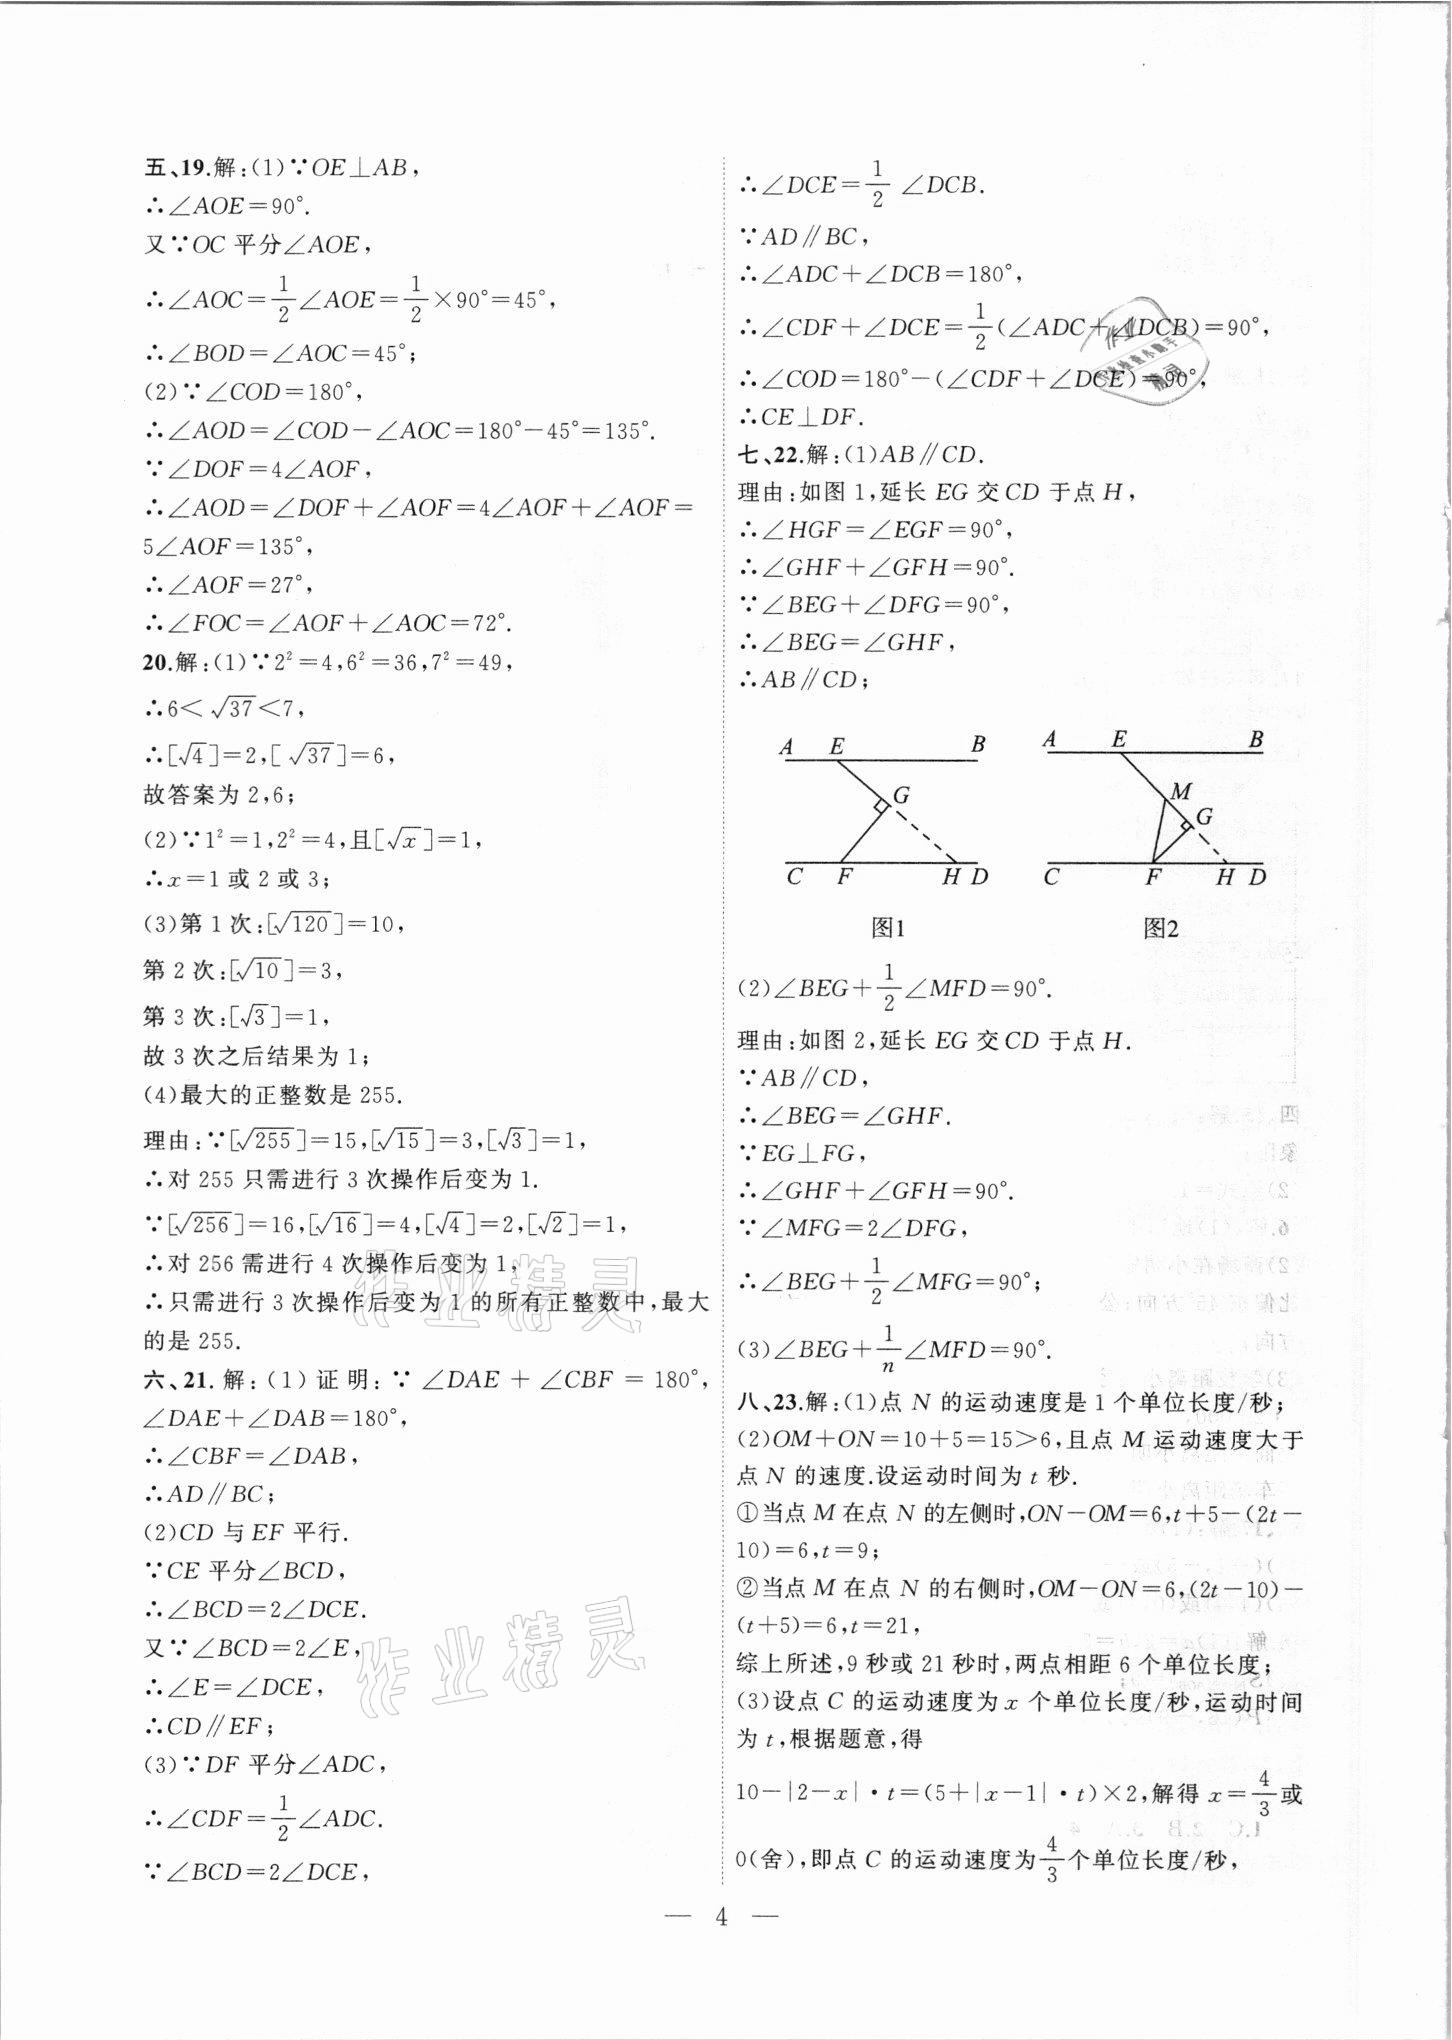 五、19.解:(1)∵OE⊥AB,
∴∠AOE=90°.
又∵OC 平分∠AOE,
∴∠AOC=1/2∠AOE=1/2×90°=45°,
∴∠BOD=∠AOC=45°;
(2)∵∠COD=180°,
∴∠AOD=∠COD-∠AOC=180°-45°=135°.
∵∠DOF=4∠AOF,
∴∠AOD=∠DOF+∠AOF=4∠AOF+∠AOF=
5∠AOF=135°,
∴∠AOF=27°,
∴∠FOC=∠AOF+∠AOC=72°.
20.解:(1)∵2²=4,6²=36,7²=49,
∴6<√37<7,
∴[√4]=2,[√37]=6,
故答案为 2,6;
(2)∵1²=1,2²=4,且[√x]=1,
∴x=1 或 2 或 3;
(3)第 1 次:[√120]=10,
第 2 次:[√10]=3,
第 3 次:[√3]=1,
故 3 次之后结果为 1;
(4)最大的正整数是 255.
理由:∵[√255]=15,[√15]=3,[√3]=1,
∴对 255 只需进行 3 次操作后变为 1.
∵[√256]=16,[√16]=4,[√4]=2,[√2]=1,
∴对 256 需进行 4 次操作后变为 1,
∴只需进行 3 次操作后变为 1 的所有正整数中,最大
的是 255.
六、21.解:(1)证明:∵∠DAE+∠CBF=180°,
∠DAE+∠DAB=180°,
∴∠CBF=∠DAB,
∴AD∥BC;
(2)CD 与 EF 平行.
∵CE 平分∠BCD,
∴∠BCD=2∠DCE.
又∵∠BCD=2∠E,
∴∠E=∠DCE,
∴CD∥EF;
(3)∵DF 平分∠ADC,
∴∠CDF=1/2∠ADC.
∵∠BCD=2∠DCE,
∴∠DCE=1/2 ∠DCB.
∵AD∥BC,
∴∠ADC+∠DCB=180°,
∴∠CDF+∠DCE=1/2(∠ADC+∠DCB)=90°,
∴∠COD=180°-(∠CDF+∠DCE)=90°,
∴CE⊥DF.
七、22.解:(1)AB∥CD.
理由:如图 1,延长 EG 交 CD 于点 H,
∴∠HGF=∠EGF=90°,
∴∠GHF+∠GFH=90°.
∵∠BEG+∠DFG=90°,
∴∠BEG=∠GHF,
∴AB∥CD;
A E B
G
C F H D
图1
A E B
M
G
C F H D
图2
(2)∠BEG+1/2∠MFD=90°.
理由:如图 2,延长 EG 交 CD 于点 H.
∵AB∥CD,
∴∠BEG=∠GHF.
∵EG⊥FG,
∴∠GHF+∠GFH=90°.
∵∠MFG=2∠DFG,
∴∠BEG+1/2∠MFG=90°;
(3)∠BEG+1/n∠MFD=90°.
八、23.解:(1)点 N 的运动速度是 1 个单位长度/秒;
(2)OM+ON=10+5=15>6,且点 M 运动速度大于
点 N 的速度.设运动时间为 t 秒.
①当点 M 在点 N 的左侧时,ON-OM=6,t+5-(2t-
10)=6,t=9;
②当点 M 在点 N 的右侧时,OM-ON=6,(2t-10)-
(t+5)=6,t=21,
综上所述,9 秒或 21 秒时,两点相距 6 个单位长度;
(3)设点 C 的运动速度为 x 个单位长度/秒,运动时间
为 t,根据题意,得
10-|2-x|·t=(5+|x-1|·t)×2,解得 x=4/3或
0(舍),即点 C 的运动速度为4/3个单位长度/秒,
— 4 —
作业精灵
作业精灵